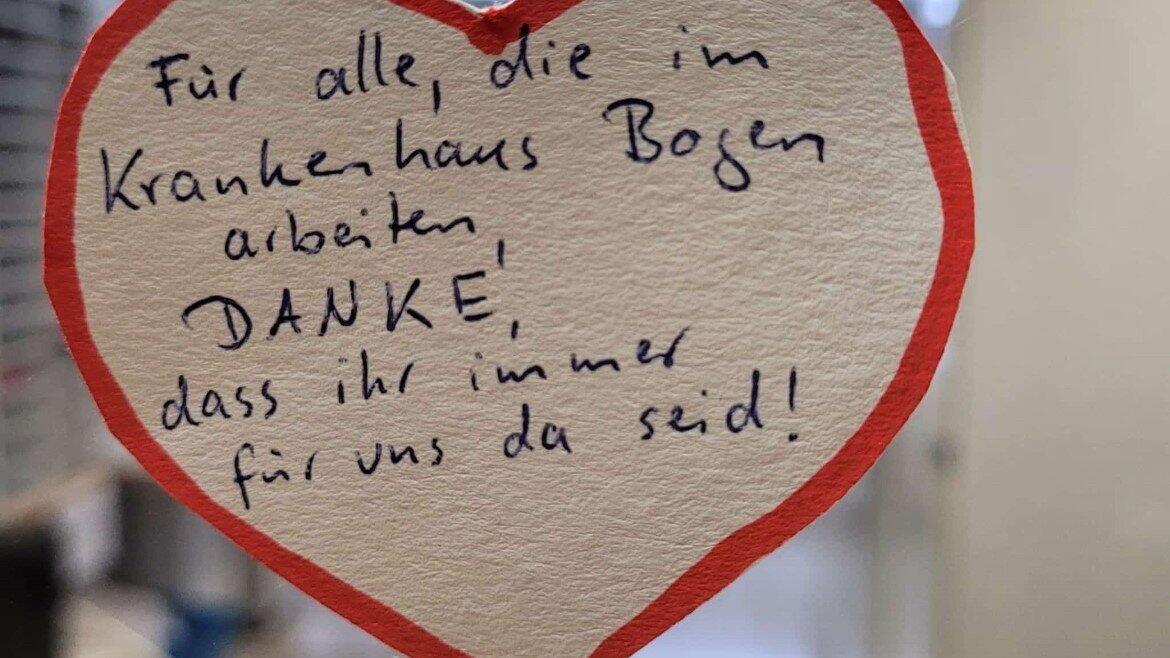 Für alle, die im
Krankenhaus Bogen
arbeiten,
DANKE,
dass ihr immer
für uns da seid!